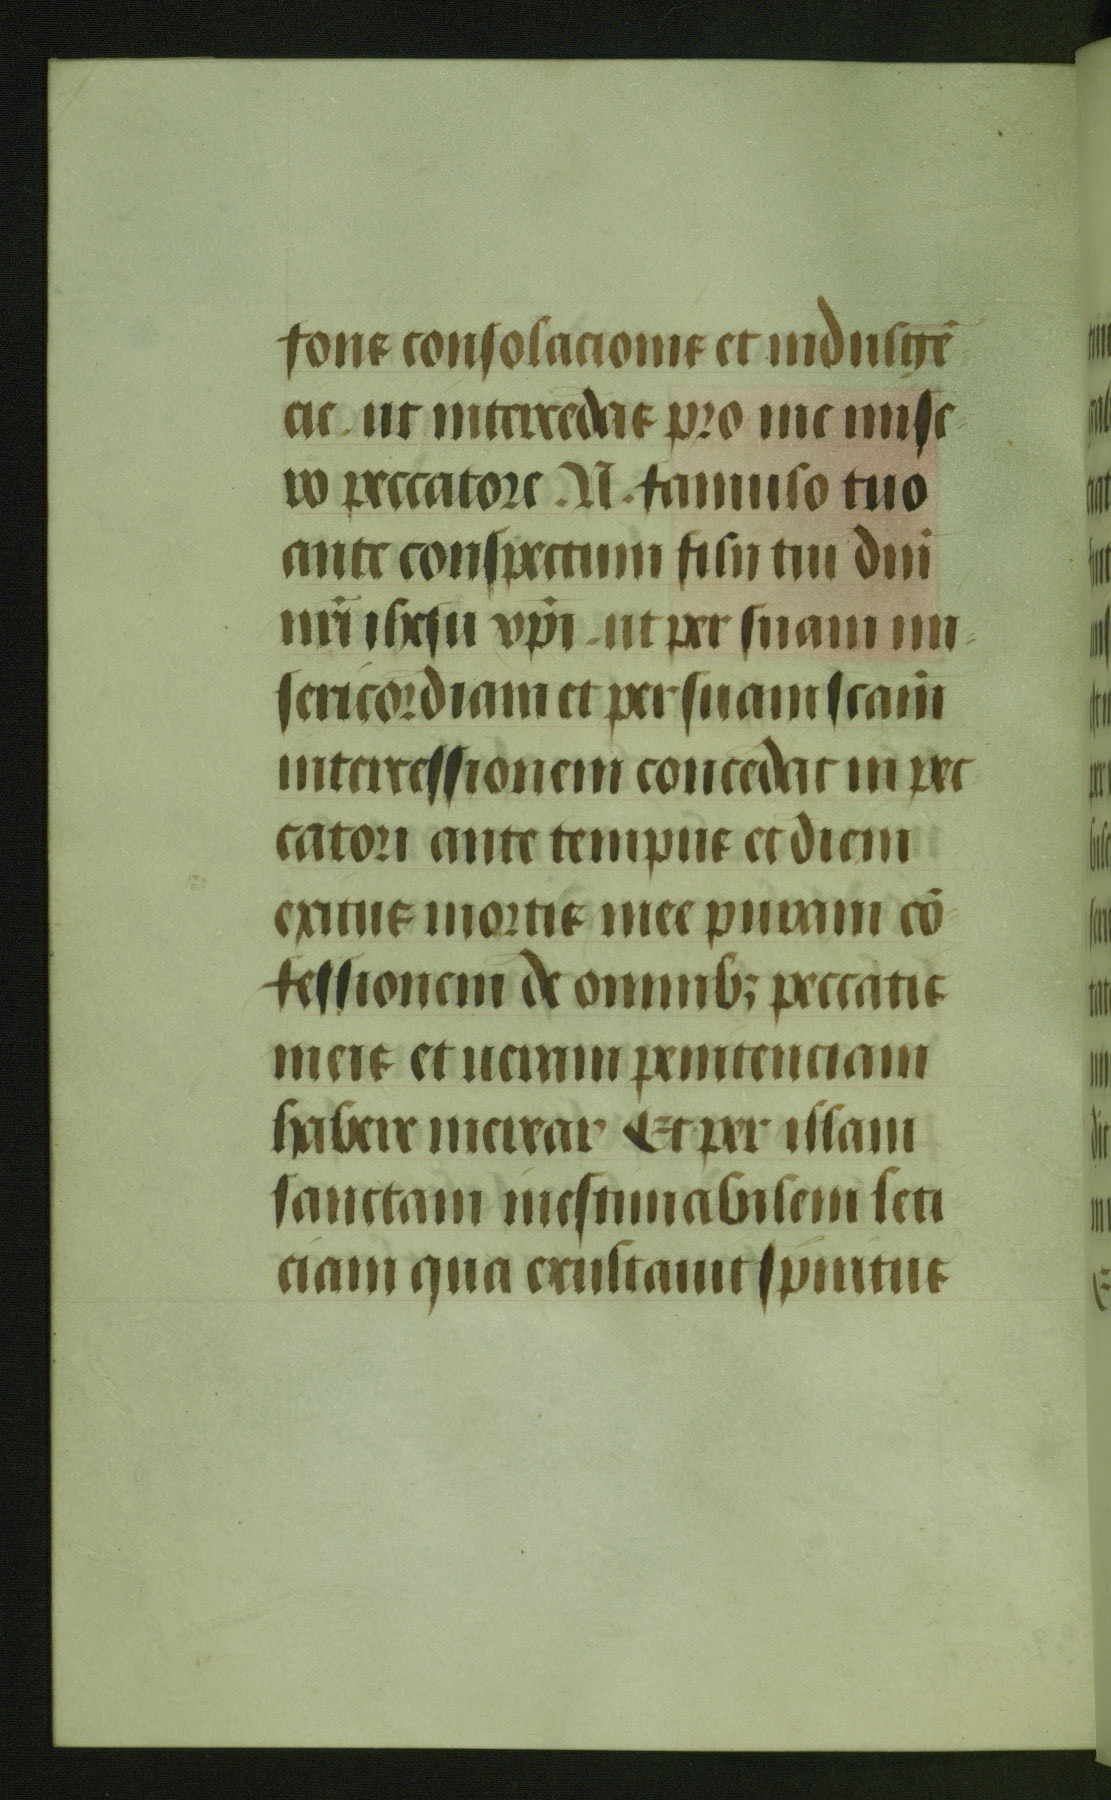 fons consolacionis et indulgē
cie. ut intercedas pro me mise-
ro peccatore .N. famulo tuo
ante conspectum filij tui dn̄i
nr̄i ihesu xp̄i. ut per suam mi-
sericordiam et per suam sc̄am
intercessionem concedat m pec-
catori ante tempus et diem
exitus mortis mee puram cō-
fessionem de omnib; peccatis
meis et ueram penitenciam
habere merear Et per illam
sanctam inestimabilem leti
ciam qua exultauit sp̄iritus